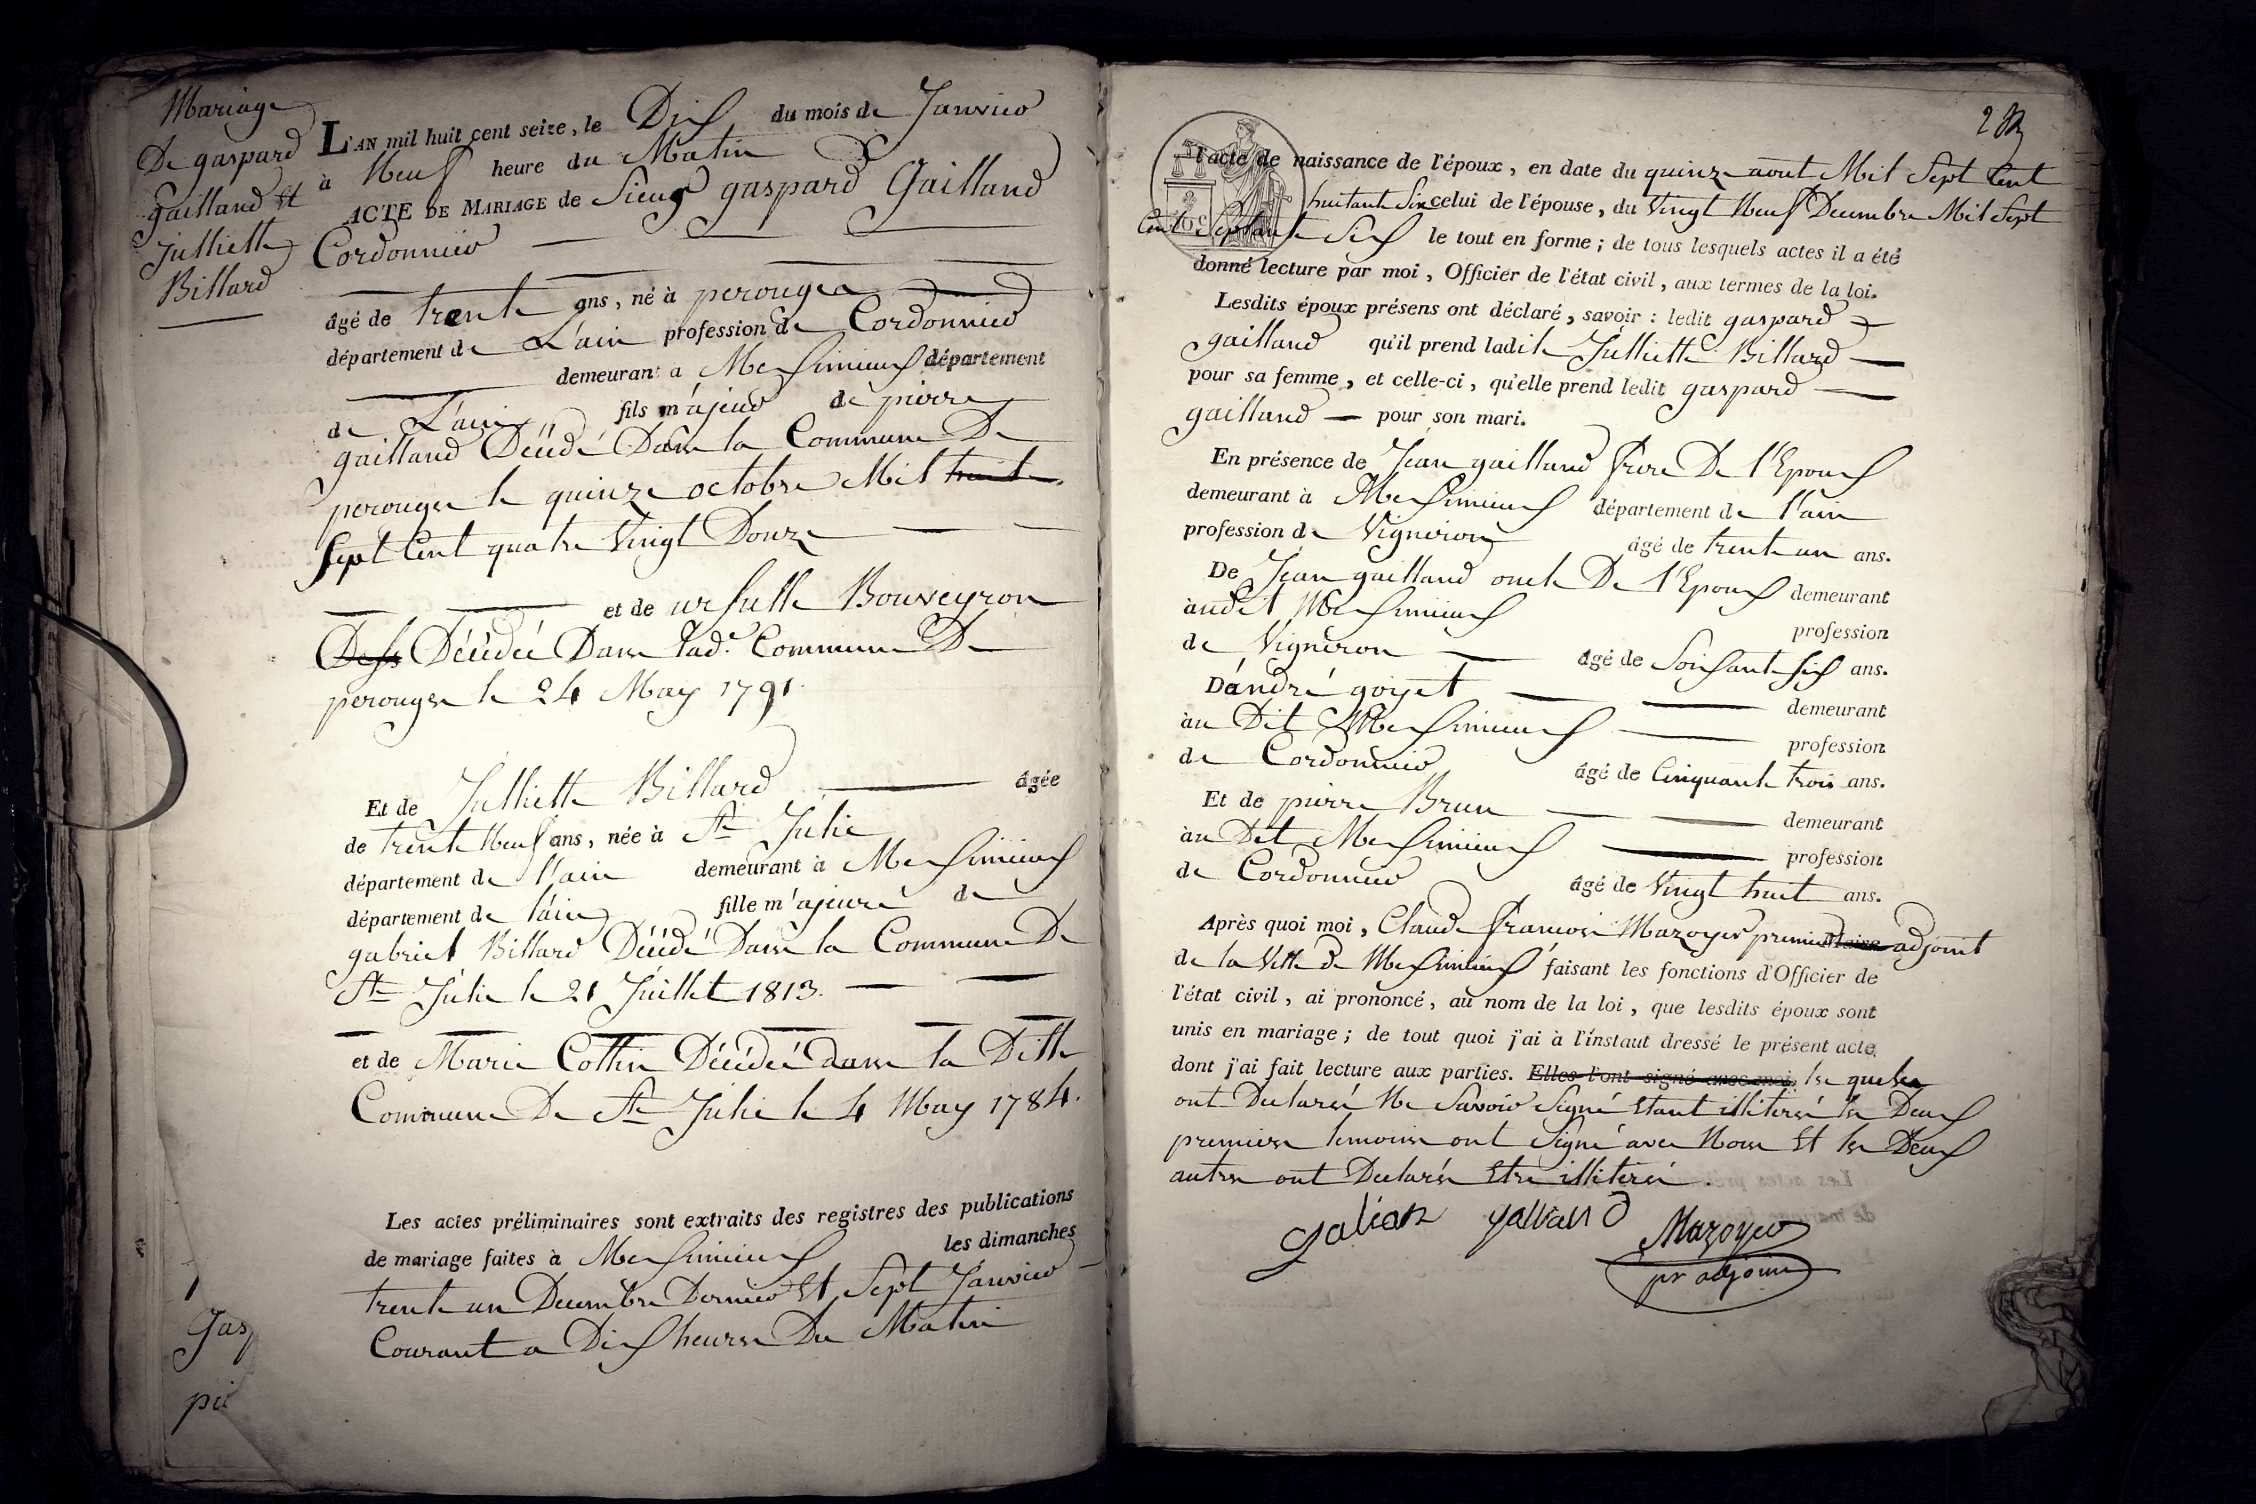 Mariage
De gaspard
gailland Et
julliette
Billard
L'AN mil huit cent seize, le Dix du mois de Janvier
à Neuf heure du Matin
ACTE DE MARIAGE de Sieur gaspard Gailland
Cordonnier
âgé de trente ans, né à perouges
département de L'ain profession de Cordonnier
demeurant a Meximieux département
de L'ain fils m'ajeur de pierre
gailland Décédé Dans la Commune De
perouges le quinze octobre Mil huit
Sept Cent quatre Vingt Douze
et de ursulle Bouveyron
Décédée Dans lad.e Commune De
perouges le 24 May 1791
Et de Julliette Billard âgée
de trente Neuf ans, née à Ste Julie
département de l'ain demeurant à Meximieux
département de l'ain fille m'ajeure de
gabriel Billard Décédé Dans la Commune De
Ste Julie le 21 Juillet 1813.
et de Marie Cottin Décédée dans la Ditte
Commune De Ste Julie le 4 May 1784.
Les actes préliminaires sont extraits des registres des publications
de mariage faites à Meximieux les dimanches
trente un Decembre Dernier Et Sept Janvier
Courant a Dix heures Du Matin
Gasp
pie
l'acte de naissance de l'époux, en date du quinze aout Mil Sept Cent
huitante Six celui de l'épouse, du Vingt Neuf Decembre Mil Sept
Cent Septante Six le tout en forme; de tous lesquels actes il a été
donné lecture par moi, Officier de l'état civil, aux termes de la loi.
Lesdits époux présens ont déclaré, savoir: ledit gaspard
gailland qu'il prend ladite Julliette Billard
pour sa femme, et celle-ci, qu'elle prend ledit gaspard
gailland pour son mari.
En présence de Jean gailland frere De l'Epoux
demeurant à Meximieux département de l'ain
profession de Vigneron âgé de trente un ans.
De Jean gailland oncle De l'Epoux demeurant
audit Meximieux profession
de Vigneron âgé de Soixante six ans.
D'andré goyet demeurant
au Dit Meximieux profession
de Cordonnier âgé de Cinquante trois ans.
Et de pierre Brun demeurant
au Dit Meximieux profession
de Cordonnier âgé de Vingt huit ans.
Après quoi moi, Claude françois Mazoyer premier Maire adjoint
de la Ville de Meximieux faisant les fonctions d'Officier de
l'état civil, ai prononcé, au nom de la loi, que lesdits époux sont
unis en mariage; de tout quoi j'ai à l'instaut dressé le présent acte,
dont j'ai fait lecture aux parties. Elles l'ont signé avec moi. lesquels
ont Declarés Ne Savoir Signé Etant illiterés les Deux
premiers temoins ont Signé avec Nous Et les Deux
autres ont Declarés Etre illiterés.
galian yalland Mazoyer
pr adjoint